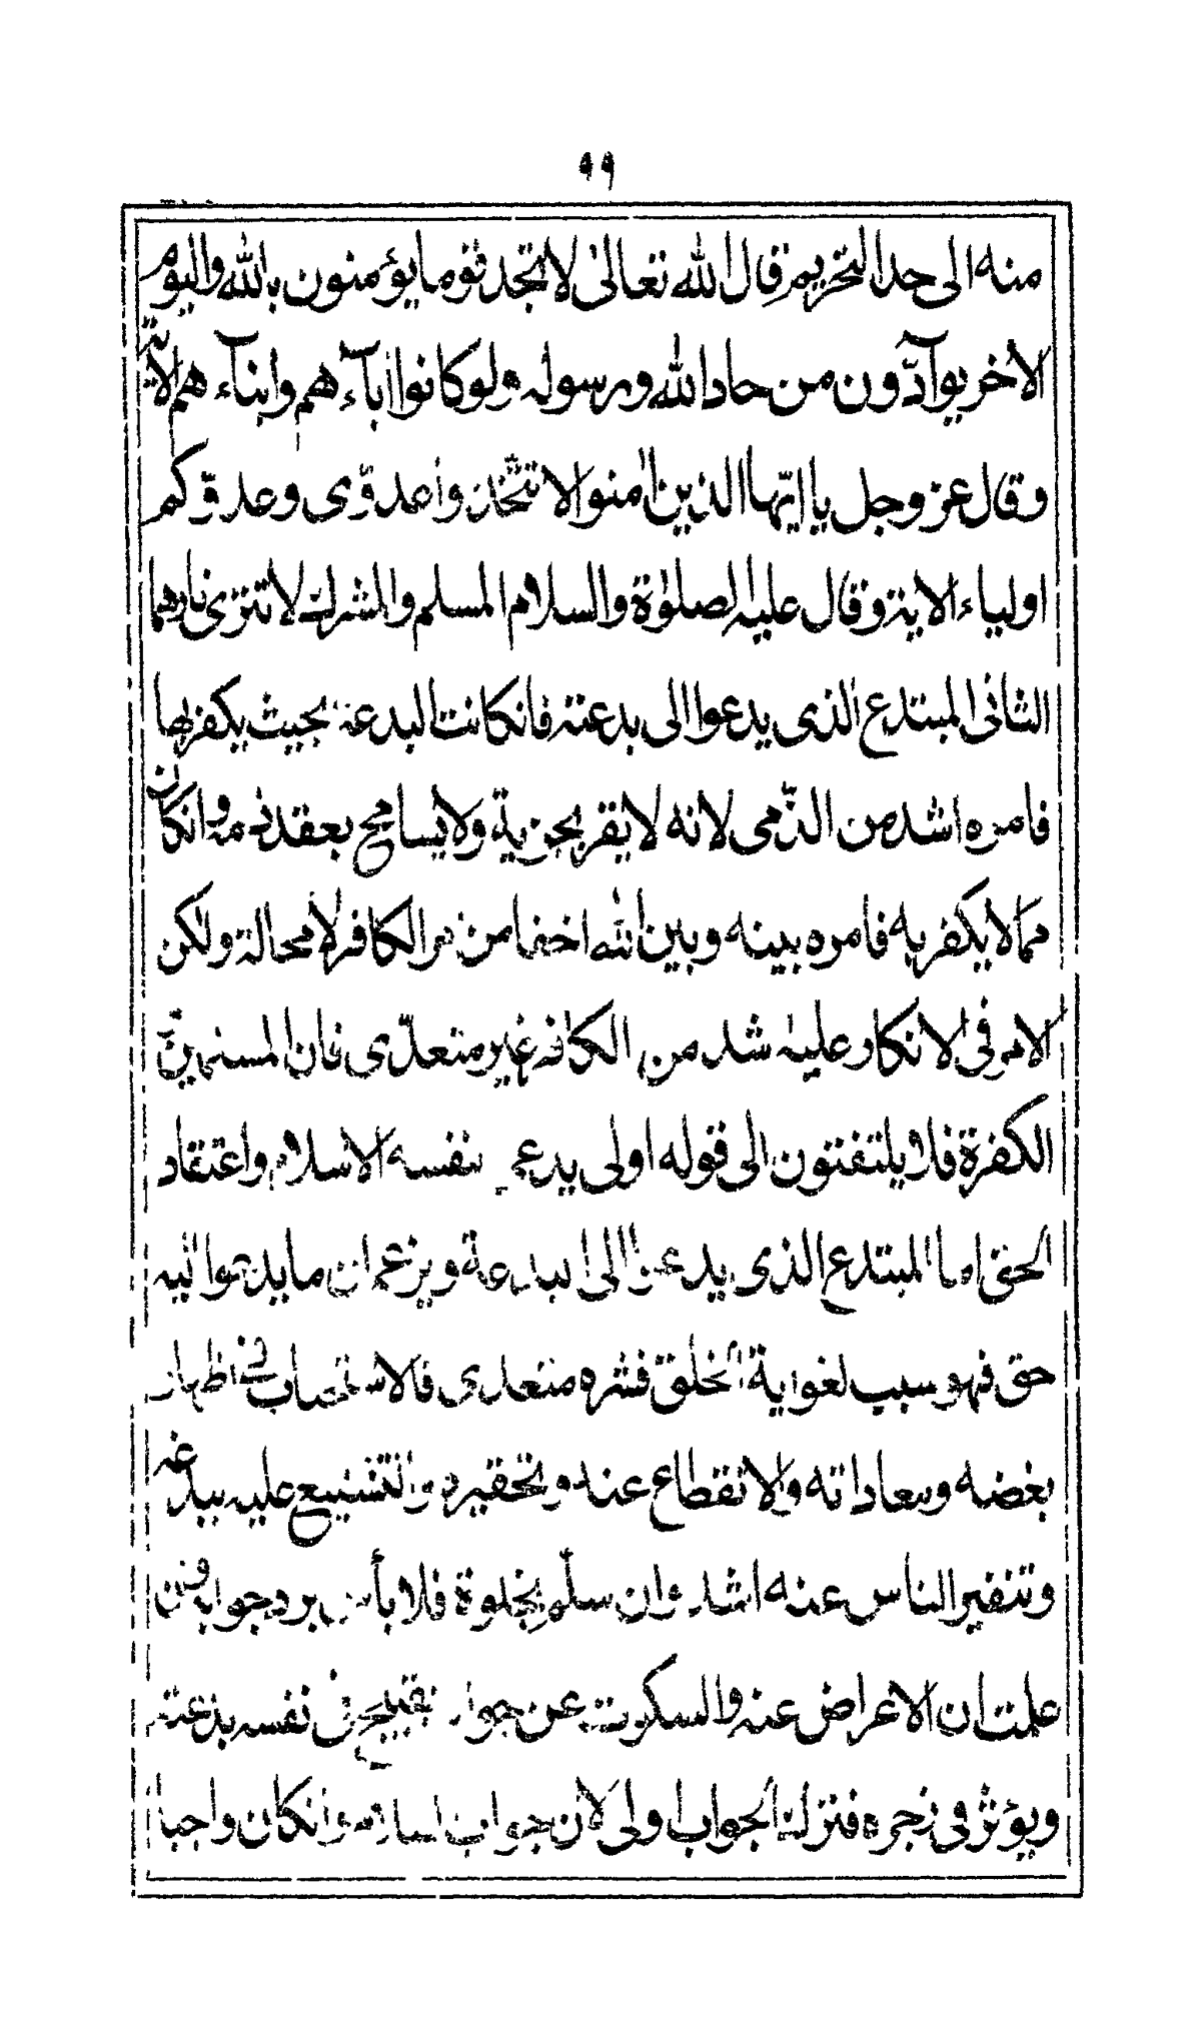 ٩٩
منه الى حد التحريم قال الله تعالىٰ لا تجد قوما يؤمنون بالله واليوم
الاخر يوآدّون من حاد الله ورسوله ولو كانوا اٰبآءهم وابنآءهم الاٰية
وقال عز وجل يا ايّها الذين اٰمنوا لا تتّخذوا عدوّى وعدوّكم
اولياء الاية وقال عليه الصلوٰة والسلام المسلم والمشرك لا تترٰى نارهما
الثانى المبتدع الذى يدعوا الى بدعته فانكانت البدعة بحيث يكفر بها
فامره اشد من الذّمى لانه لا يقر بجزية ولا يسامح بعقد ذمة وانكان
مما لا يكفر به فامره بينه وبين الله اخف من امر الكافر لا محالة ولكن
الامر فى الانكار عليه اشد من الكافر غير متعدّى فان المسلمين
الكفرة فلا يلتفتون الى قوله اولى يدعى نفسه الاسلام واعتقاد
الحق اما المبتدع الذى يدعوا الى البدعة ويزعم ان ما يدعوا اليه
حق فهو سبب لغواية الخلق فشره متعدى فالاستحباب فى اظهار
بغضه ومعاداته والانقطاع عنه وتحقيره والتشنيع عليه ببدعته
وتنفير الناس عنه اشد وان سلّم بخلوة فلا بأس برد جوابه وان
علمت ان الاعراض عنه والسكوت عن جوابه تقبيح فى نفسه بدعته
ويؤثر فى زجره فترك الجواب اولى لان جواب السلام وانكان واجبا